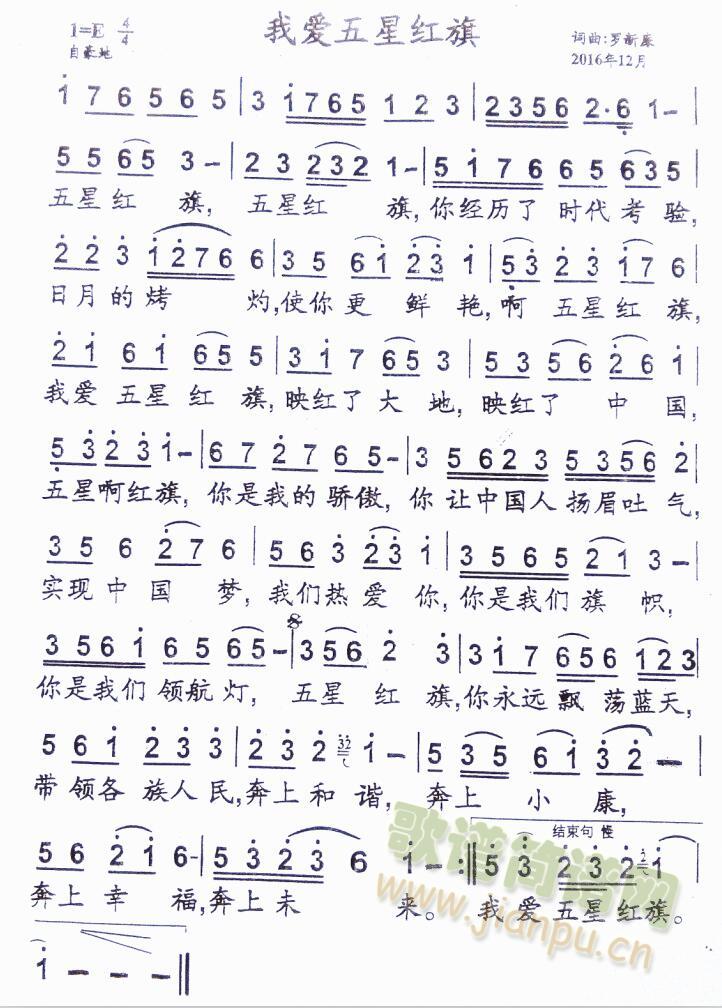 我爱五星红旗
1=E 4/4
自豪地
词曲:罗新康
2016年12月
1 7 6 5 6 5 | 3 1765 1 2 3 | 2356 2·6 1– |
5 5 65 3– | 2 3 232 1– | 5 1 7 6 6 5 635 |
五星红旗, 五星红旗,你经历了时代考验,
2 2 3 1276 6 | 3 5 61 23 1 | 53 23 17 6 |
日月的烤灼,使你更鲜艳,啊五星红旗,
2 1 6 1 65 5 | 3 1 7 65 3 | 5 3 5 6 26 1 |
我爱五星红旗,映红了大地,映红了中国,
5 3 2 3 1– | 6 7 2 7 6 5– | 3 5 6 2 3 5 356 2 |
五星啊红旗, 你是我的骄傲, 你让中国人扬眉吐气,
3 5 6 27 6 | 5 6 3 23 1 | 3 5 6 5 21 3– |
实现中国梦,我们热爱你,你是我们旗帜,
3 5 6 1 6 5 65– | 356 2 3 | 3 1 7 656 123 |
你是我们领航灯, 五星红旗,你永远飘荡蓝天,
5 61 2 3 3 | 2 3 2 32 1– | 5 35 61 32– |
带领各族人民,奔上和谐,奔上小康,
结束句 慢
5 6 21 6– | 5 3 2 3 6 1–:‖ 5 3 2 3 2 1 |
奔上幸福,奔上未来。 我爱五星红旗。
1 – – – ‖
歌谱简谱网
www.jianpu.cn